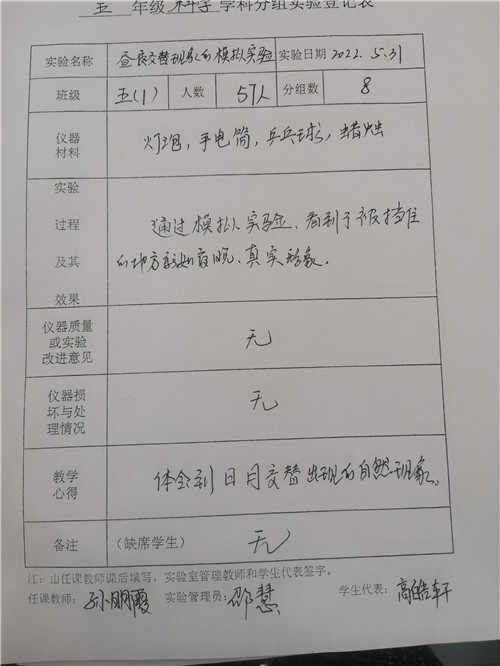 五 年级 科学 学科分组实验登记表
实验名称 昼夜交替现象的模拟实验 实验日期 2022.5.31
班级 五(1) 人数 57人 分组数 8
仪器
材料
灯泡，手电筒，乒乓球，蜡烛
实验
过程
及其
效果
通过模拟实验、看到了被挡住
的地方 夜晚、真实形象。
仪器质量
或实验
改进意见
无
仪器损
坏与处
理情况
无
教学
心得
体会到日月交替出现的自然现象。
备注 (缺席学生) 无
注：由任课教师课后填写，实验室管理教师和学生代表签字。
任课教师：孙明霞 实验管理员：邵慧 学生代表：高皓轩